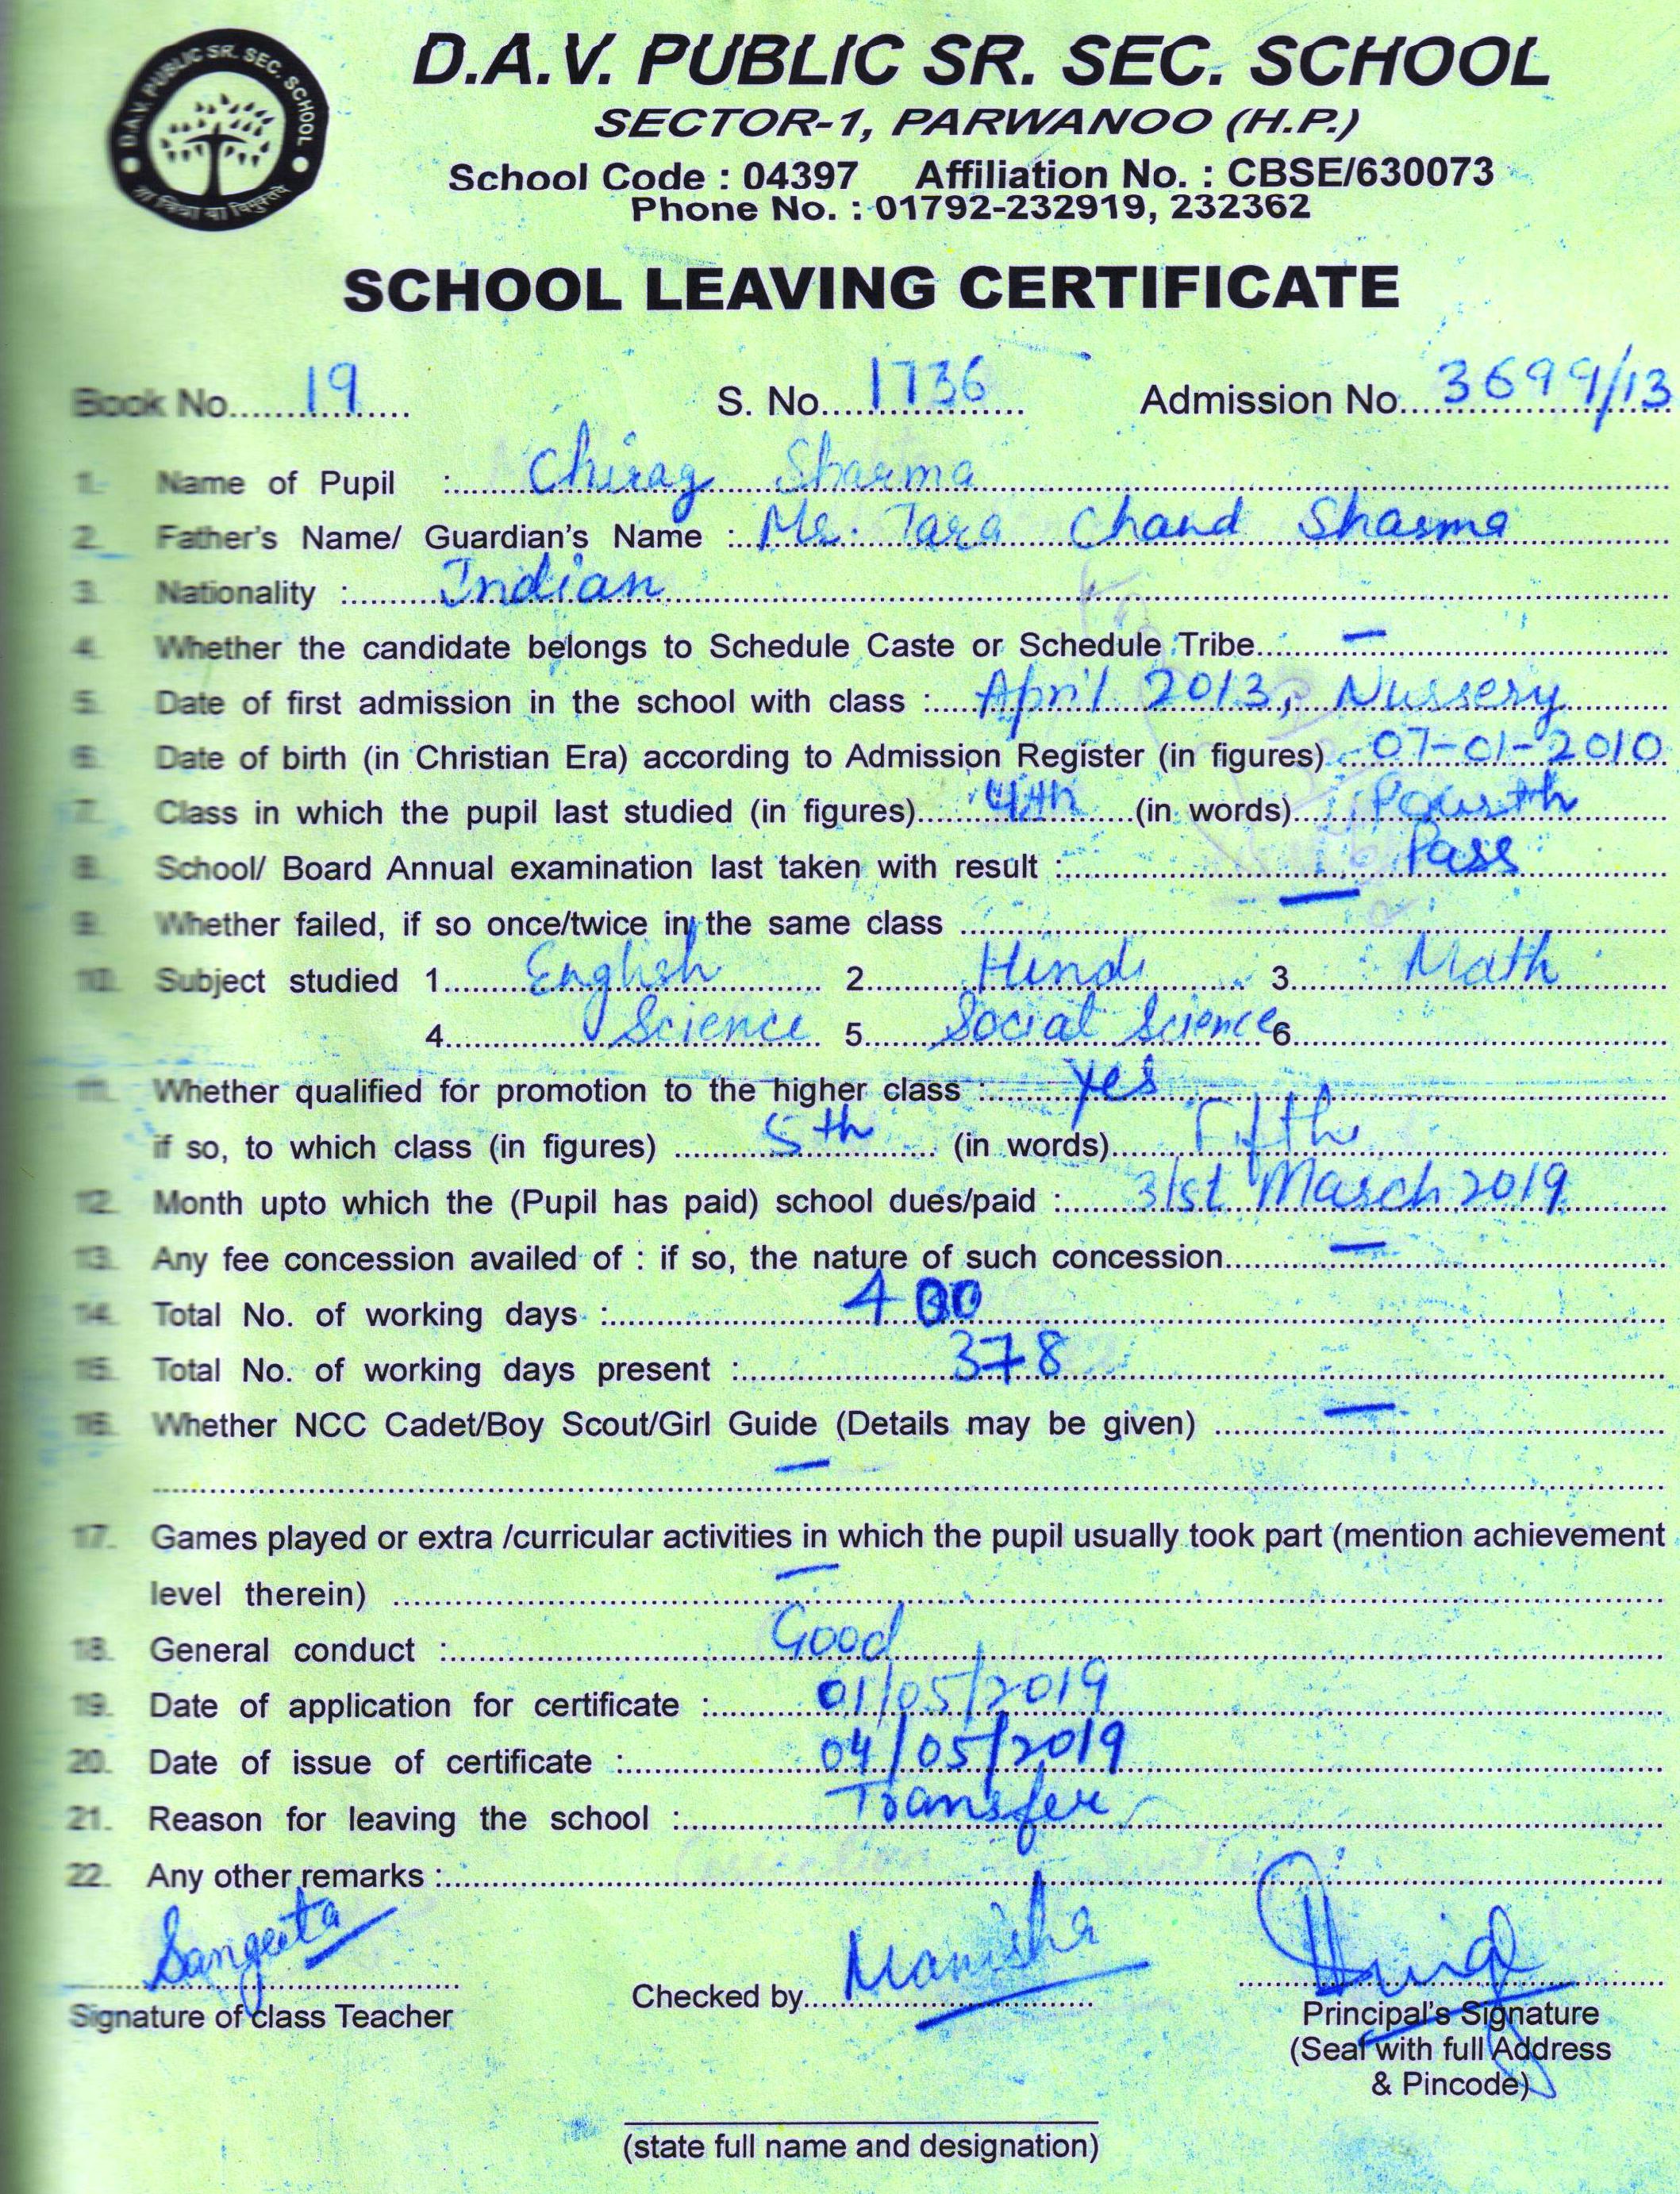 D.A.V. PUBLIC SR. SEC. SCHOOL
D.A.V. PUBLIC SR. SEC. SCHOOL
SECTOR-1, PARWANOO (H.P.)
School Code : 04397 Affiliation No. : CBSE/630073
Phone No. : 01792-232919, 232362
SCHOOL LEAVING CERTIFICATE
Book No. 19 S. No. 1736 Admission No. 3699/13
1. Name of Pupil : Chirag Sharma
2. Father's Name/ Guardian's Name : Mr. Tara Chand Sharma
3. Nationality : Indian
4. Whether the candidate belongs to Schedule Caste or Schedule Tribe. —
5. Date of first admission in the school with class : April 2013, Nursery
6. Date of birth (in Christian Era) according to Admission Register (in figures) 07-01-2010
7. Class in which the pupil last studied (in figures) 4th (in words) Fourth
8. School/ Board Annual examination last taken with result : Pass
9. Whether failed, if so once/twice in the same class —
10. Subject studied 1. English 2. Hindi 3. Math
4. Science 5. Social Science 6.
11. Whether qualified for promotion to the higher class : yes
if so, to which class (in figures) 5th (in words) Fifth
12. Month upto which the (Pupil has paid) school dues/paid : 31st March 2019
13. Any fee concession availed of : if so, the nature of such concession —
14. Total No. of working days : 400
15. Total No. of working days present : 378
16. Whether NCC Cadet/Boy Scout/Girl Guide (Details may be given) —
—
17. Games played or extra /curricular activities in which the pupil usually took part (mention achievement
level therein) —
18. General conduct : Good
19. Date of application for certificate : 01/05/2019
20. Date of issue of certificate : 04/05/2019
21. Reason for leaving the school : Transfer
22. Any other remarks :
Sangeeta Manisha
Signature of class Teacher Checked by Principal's Signature
(Seal with full Address
& Pincode)
(state full name and designation)